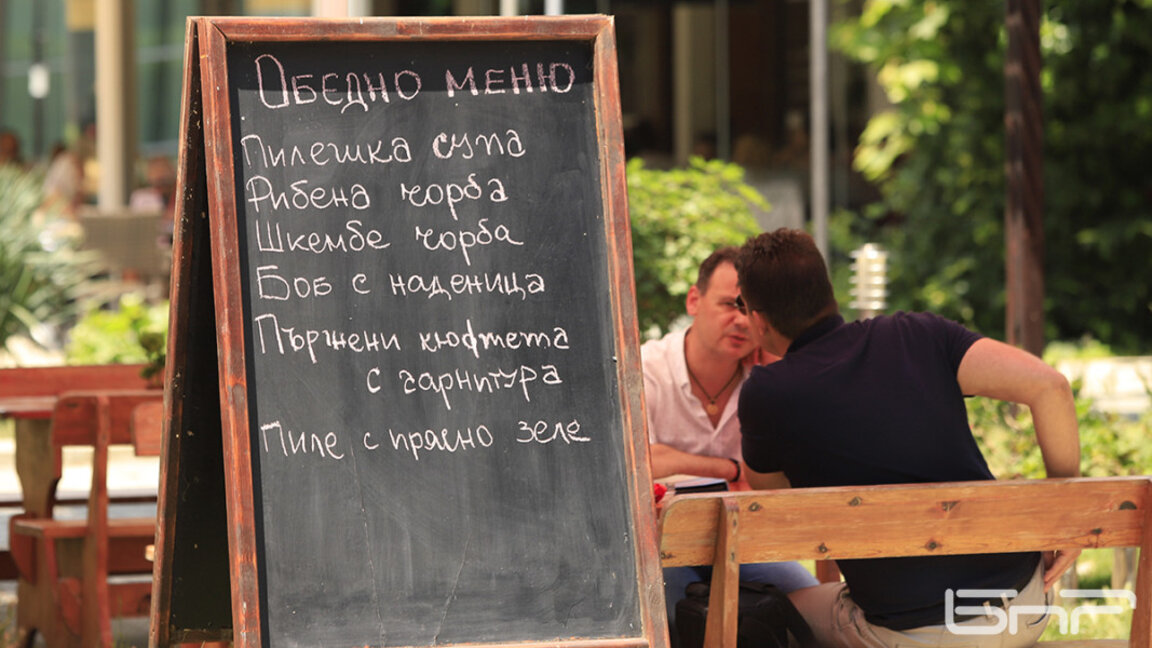 Обедно меню
Пилешка супа
Рибена чорба
Шкембе чорба
Боб с наденица
Пържени кюфтета
с гарнитура
Пиле с прясно зеле
БНР